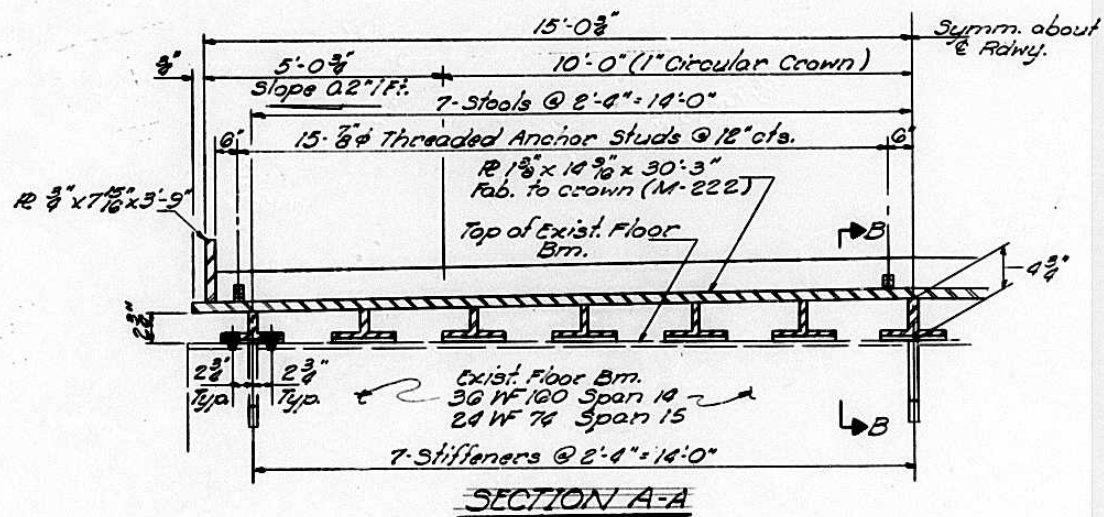 15'-0¾"
Symm. about
℄ Rdwy.
5'-0¾"
10'-0" (1" Circular Crown)
Slope 0.2"/Ft.
7-Stools @ 2'-4" = 14'-0"
6"
15-⅞"φ Threaded Anchor Studs @ 12" cts.
6"
℞ 1⅜ x 14 3/16 x 30'-3"
Fab. to crown (M-222)
℞ ¾" x 7 15/16" x 3'-9"
Top of Exist. Floor
Bm.
B
4¾"
2¾"
2¾"
Typ.
2¾"
Typ.
Exist. Floor Bm.
36 WF 160 Span 14
24 WF 74 Span 15
B
7-Stiffeners @ 2'-4" = 14'-0"
SECTION A-A